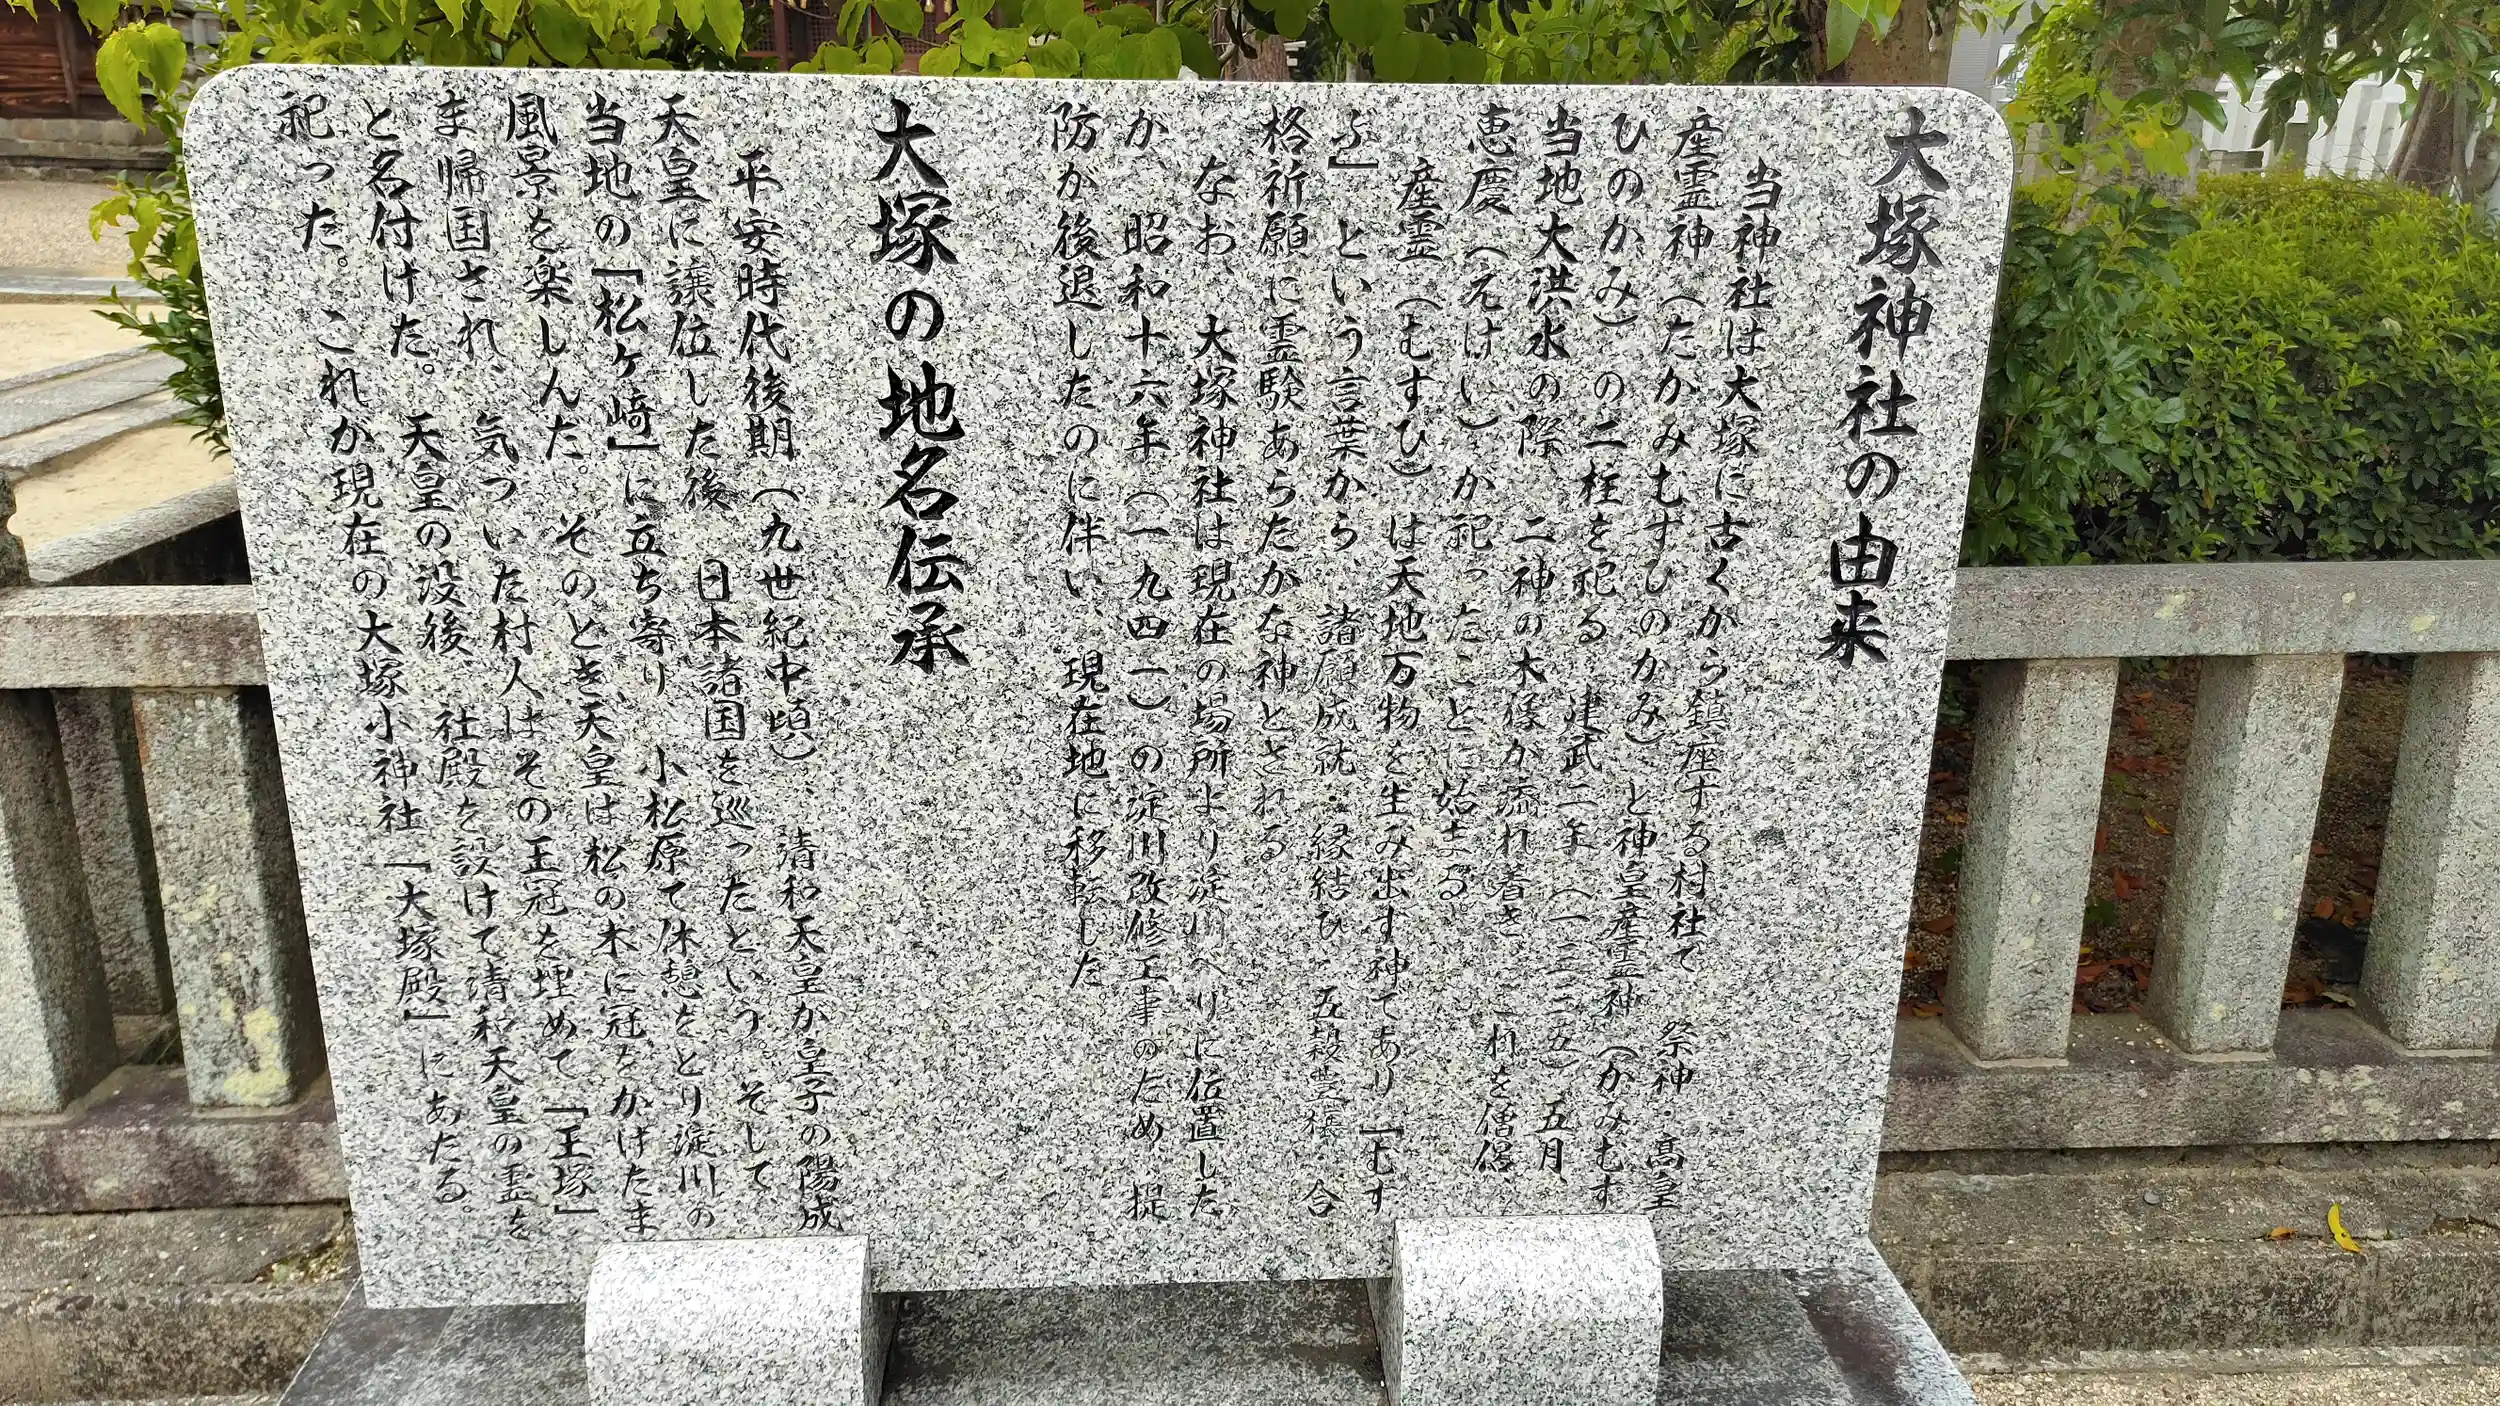 大塚神社の由来
当神社は大塚に古くから鎮座する村社で、祭神・高皇
産霊神（たかみむすひのかみ）と神皇産霊神（かみむす
ひのかみ）の二柱を祀る。建武二年（一三三五）五月、
当地大洪水の際、二神の木像が流れ着き、これを僧侶・
恵慶（えけい）が祀ったことに始まる。
産霊（むすひ）は天地万物を生み出す神であり「むす
ぶ」という言葉から、諸願成就・縁結び・五穀豊穣・合
格祈願に霊験あらたかな神とされる。
なお、大塚神社は現在の場所より淀川べりに位置した
が、昭和十六年（一九四一）の淀川改修工事のため、堤
防が後退したのに伴い、現在地に移転した。
大塚の地名伝承
平安時代後期（九世紀中頃）、清和天皇が皇子の陽成
天皇に譲位した後、日本諸国を巡ったという。そして、
当地の「松ヶ崎」に立ち寄り、小松原で休憩をとり淀川の
風景を楽しんだ。そのとき天皇は松の木に冠をかけたま
ま帰国され、気づいた村人はその王冠を埋めて「王塚」
と名付けた。天皇の没後、社殿を設けて清和天皇の霊を
祀った。これが現在の大塚小神社「大塚殿」にあたる。